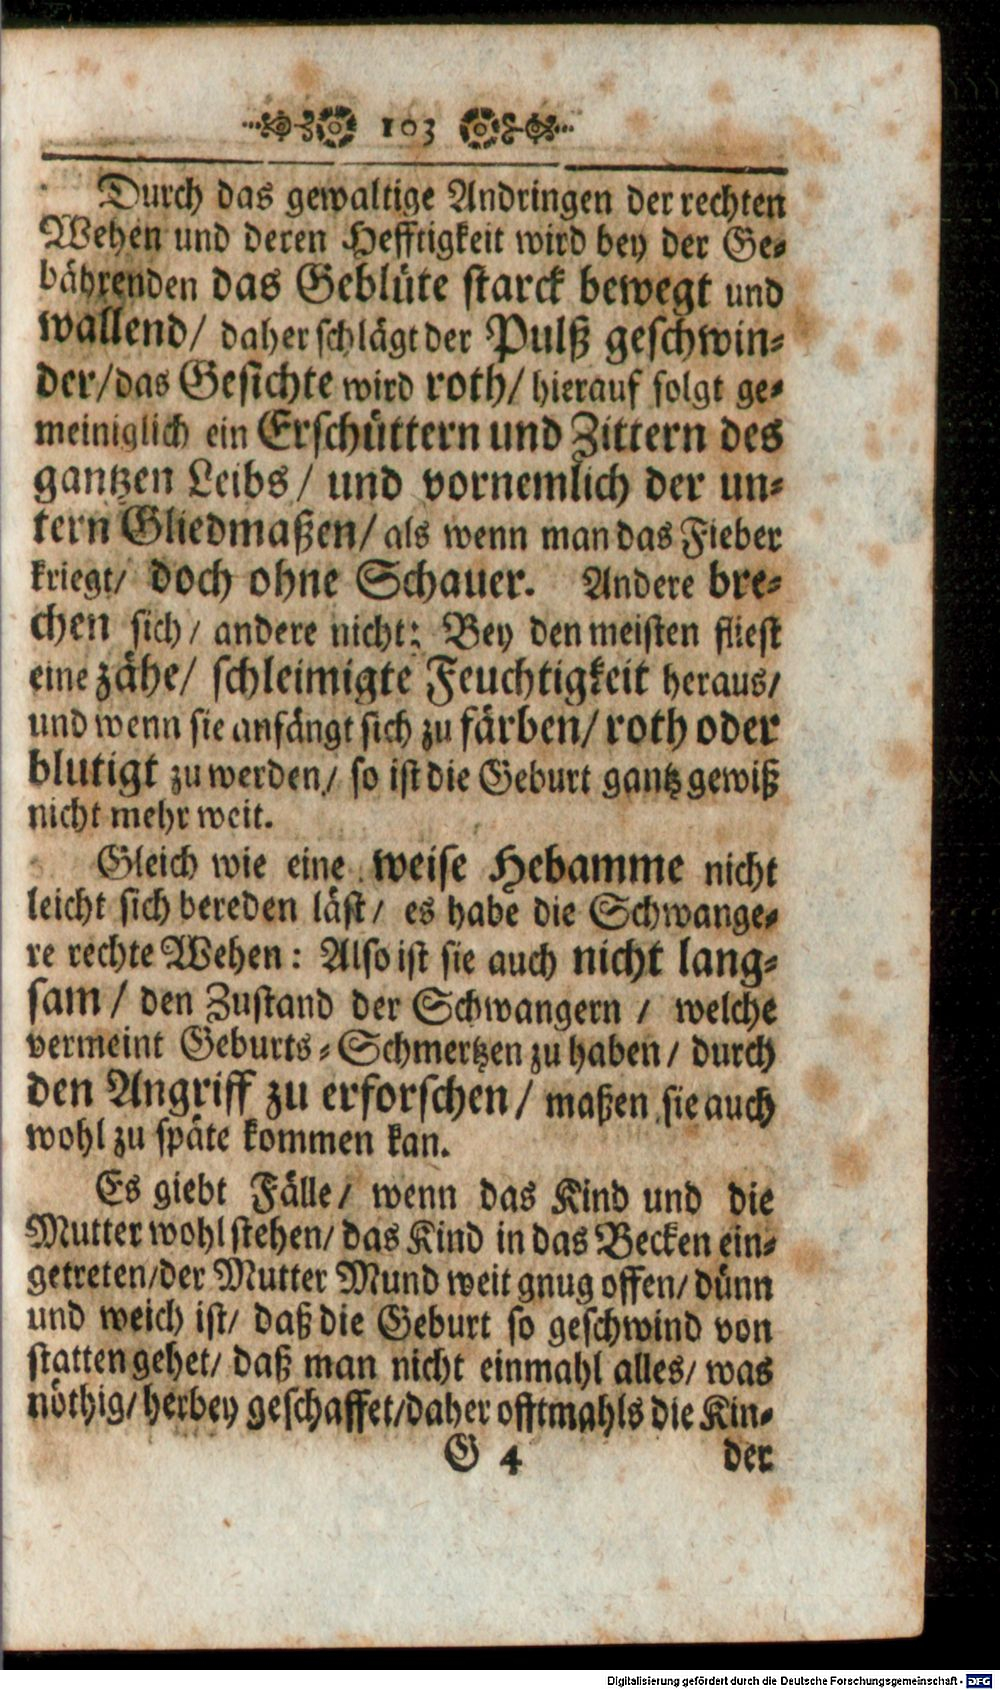 103
Durch das gewaltige Andringen der rechten
Wehen und deren Hefftigkeit wird bey der Ge-
bährenden das Geblüte starck bewegt und
wallend/ daher schlägt der Pulß geschwin-
der/das Gesichte wird roth/ hierauf folgt ge-
meiniglich ein Erschüttern und Zittern des
gantzen Leibs / und vornemlich der un-
tern Gliedmaßen/ als wenn man das Fieber
kriegt/ doch ohne Schauer. Andere bre-
chen sich/ andere nicht: Bey den meisten fliest
eine zähe/ schleimigte Feuchtigkeit heraus/
und wenn sie anfängt sich zu färben/ roth oder
blutigt zu werden/ so ist die Geburt gantz gewiß
nicht mehr weit.
Gleich wie eine weise Hebamme nicht
leicht sich bereden läst/ es habe die Schwange-
re rechte Wehen: Also ist sie auch nicht lang-
sam / den Zustand der Schwangern / welche
vermeint Geburts-Schmertzen zu haben/ durch
den Angriff zu erforschen/ maßen sie auch
wohl zu späte kommen kan.
Es giebt Fälle/ wenn das Kind und die
Mutter wohl stehen/ das Kind in das Becken ein-
getreten/der Mutter Mund weit gnug offen/ dünn
und weich ist/ daß die Geburt so geschwind von
statten gehet/ daß man nicht einmahl alles/ was
nöthig/ herbey geschaffet/daher offtmahls die Kin-
G 4 der
Digitalisierung gefördert durch die Deutsche Forschungsgemeinschaft - DFG